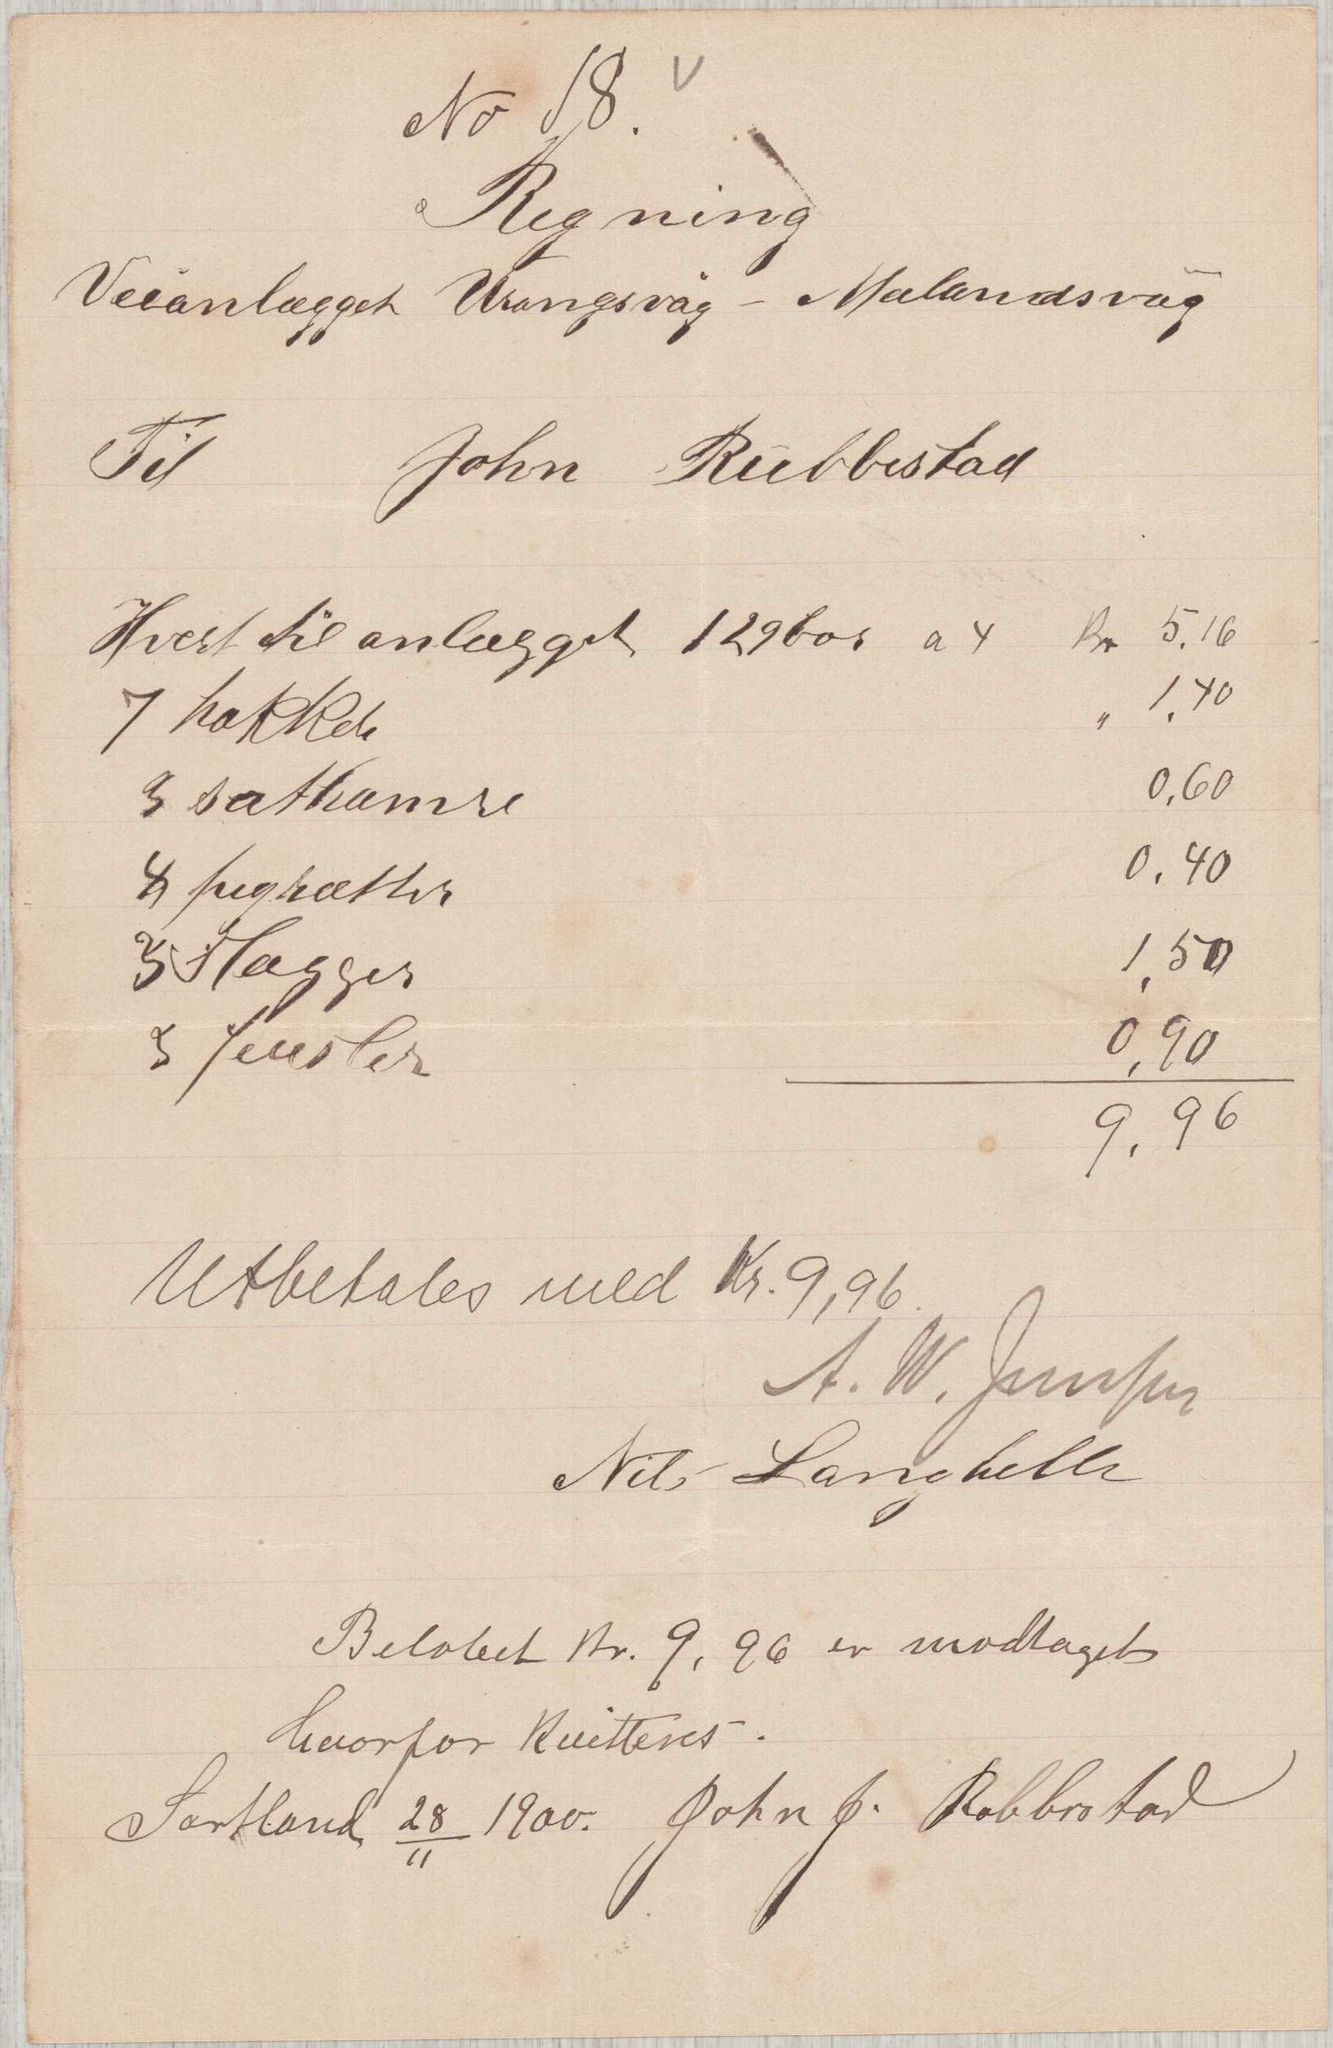 No 18. v
Regning
Veianlægget Urangsvåg - Mælandsvåg
Til John Rubbestad
Hvest til anlægget 129 bor a 4 Kr 5.16
7 hakker " 1,40
3 sathamre 0,60
4 0,40
3 slægger 1,50
3 feisler 0,90
9,96
Utbetales med Kr. 9,96.
A. W. Jensen
Nils Langhelle
Beløbet Kr. 9,96 er modtaget
hvorfor kvitteres.
Sortland 28/11 1900. John J. Robbestad